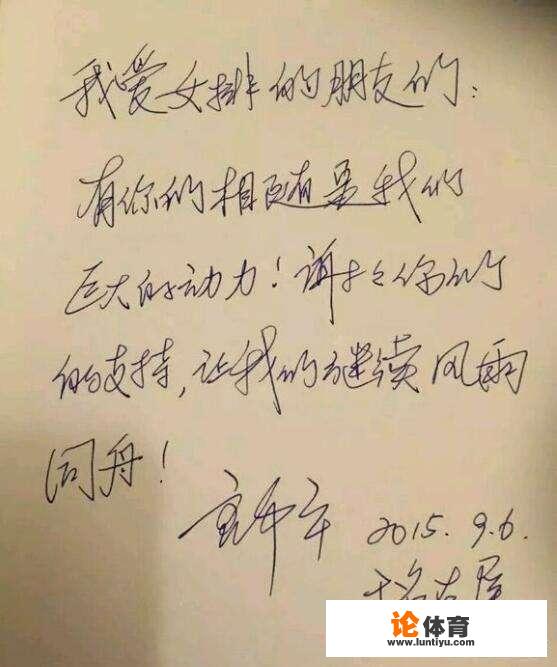 我爱女排的朋友们:
有你们相随是我们
巨大的动力！谢谢你们
的支持,让我们继续风雨
同舟！
2015.9.6.
于名古屋
论体育
www.luntiyu.com